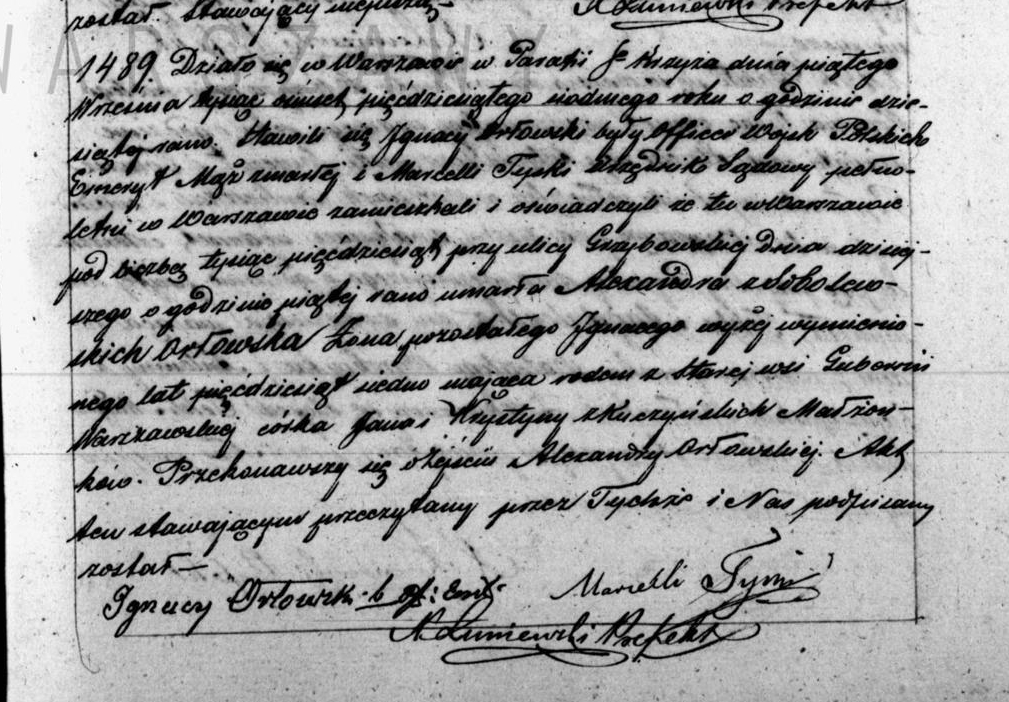 został. Stawający niepiszą
N Łuniewski Prefekt
WARSZAWY
1489. Działo się w Warszawie w Parafii Sgo Krzyża dnia piątego
Września tysiąc ośmset pięćdziesiątego siodmego roku o godzinie dzie-
siątej rano. Stawili się Ignacy Orłowski były Officer Wojsk Polskich
Emeryt Mąż zmarłej i Marcelli Urzędnik Sądowy pełno-
letni w Warszawie zamieszkali i oświadczyli że tu w Warszawie
pod liczbą tysiąc pięćdziesiąt przy ulicy Grzybowskiej Dnia dzisiej-
szego o godzinie piątej rano umarła Alexandra z Sobolew-
skich Orłowska Żona pozostałego Ignacego wyżej wymienio-
nego lat pięćdziesiąt siedm mająca rodem z Starej wsi Gubernii
Warszawskiej córka Jana i Krystyny z Kuczyńskich Małżon-
ków. Przekonawszy się o zejściu Alexandry Orłowskiej. Akt
ten stawającym przeczytany przez Tychże i Nas podpisany
został—
Ignacy Orłowski b. of: Emt. Marcelli
N Łuniewski Prefekt